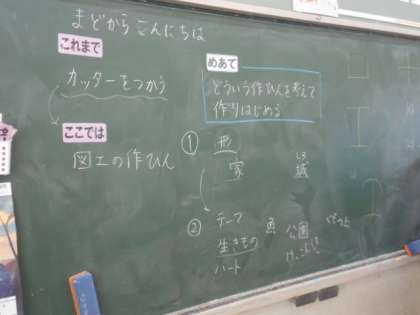 まどから こんにちは
これまで
カッターをつかう
ここでは
図工の作ひん
めあて
どういう作ひんを考えて
作りはじめる
① 形
家 城
しろ
② テーマ 魚 公園 ペット
生きもの
ハート